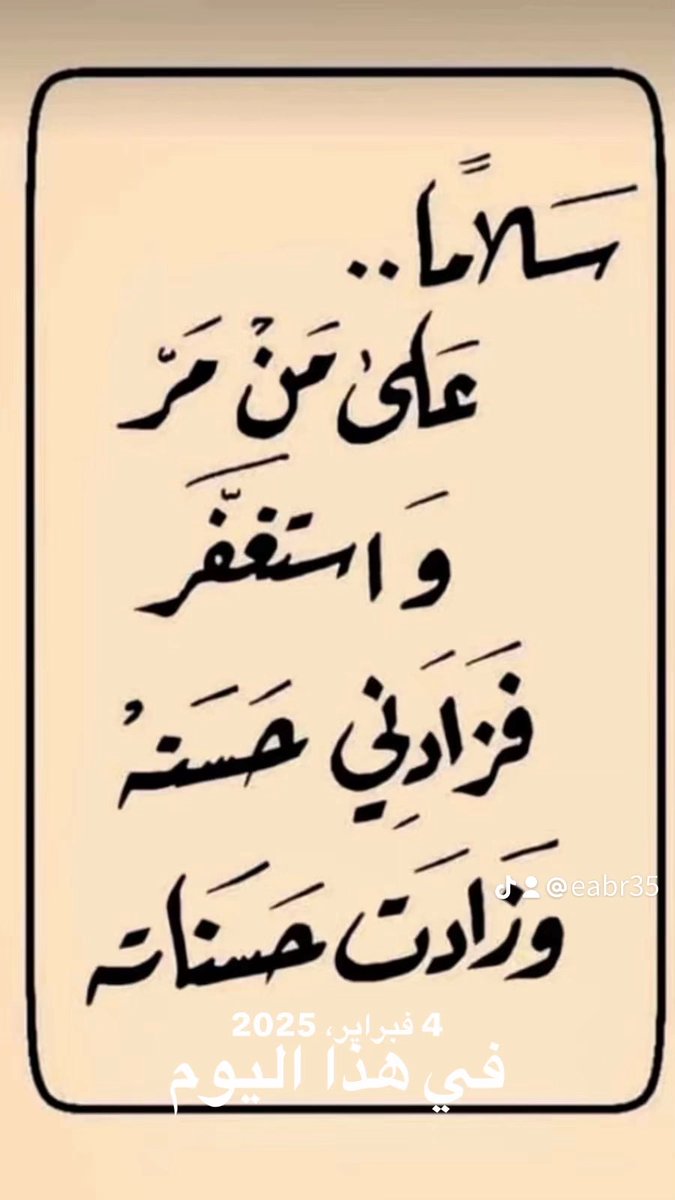 سَلامًا..
عَلىٰ مَنْ مَرَّ
وَ استغفَّرَ
فَزَادَنِي حَسَنهُ
وَزَادَت حَسَناته
@eabr35
4 فبراير، 2025
في هذا اليوم